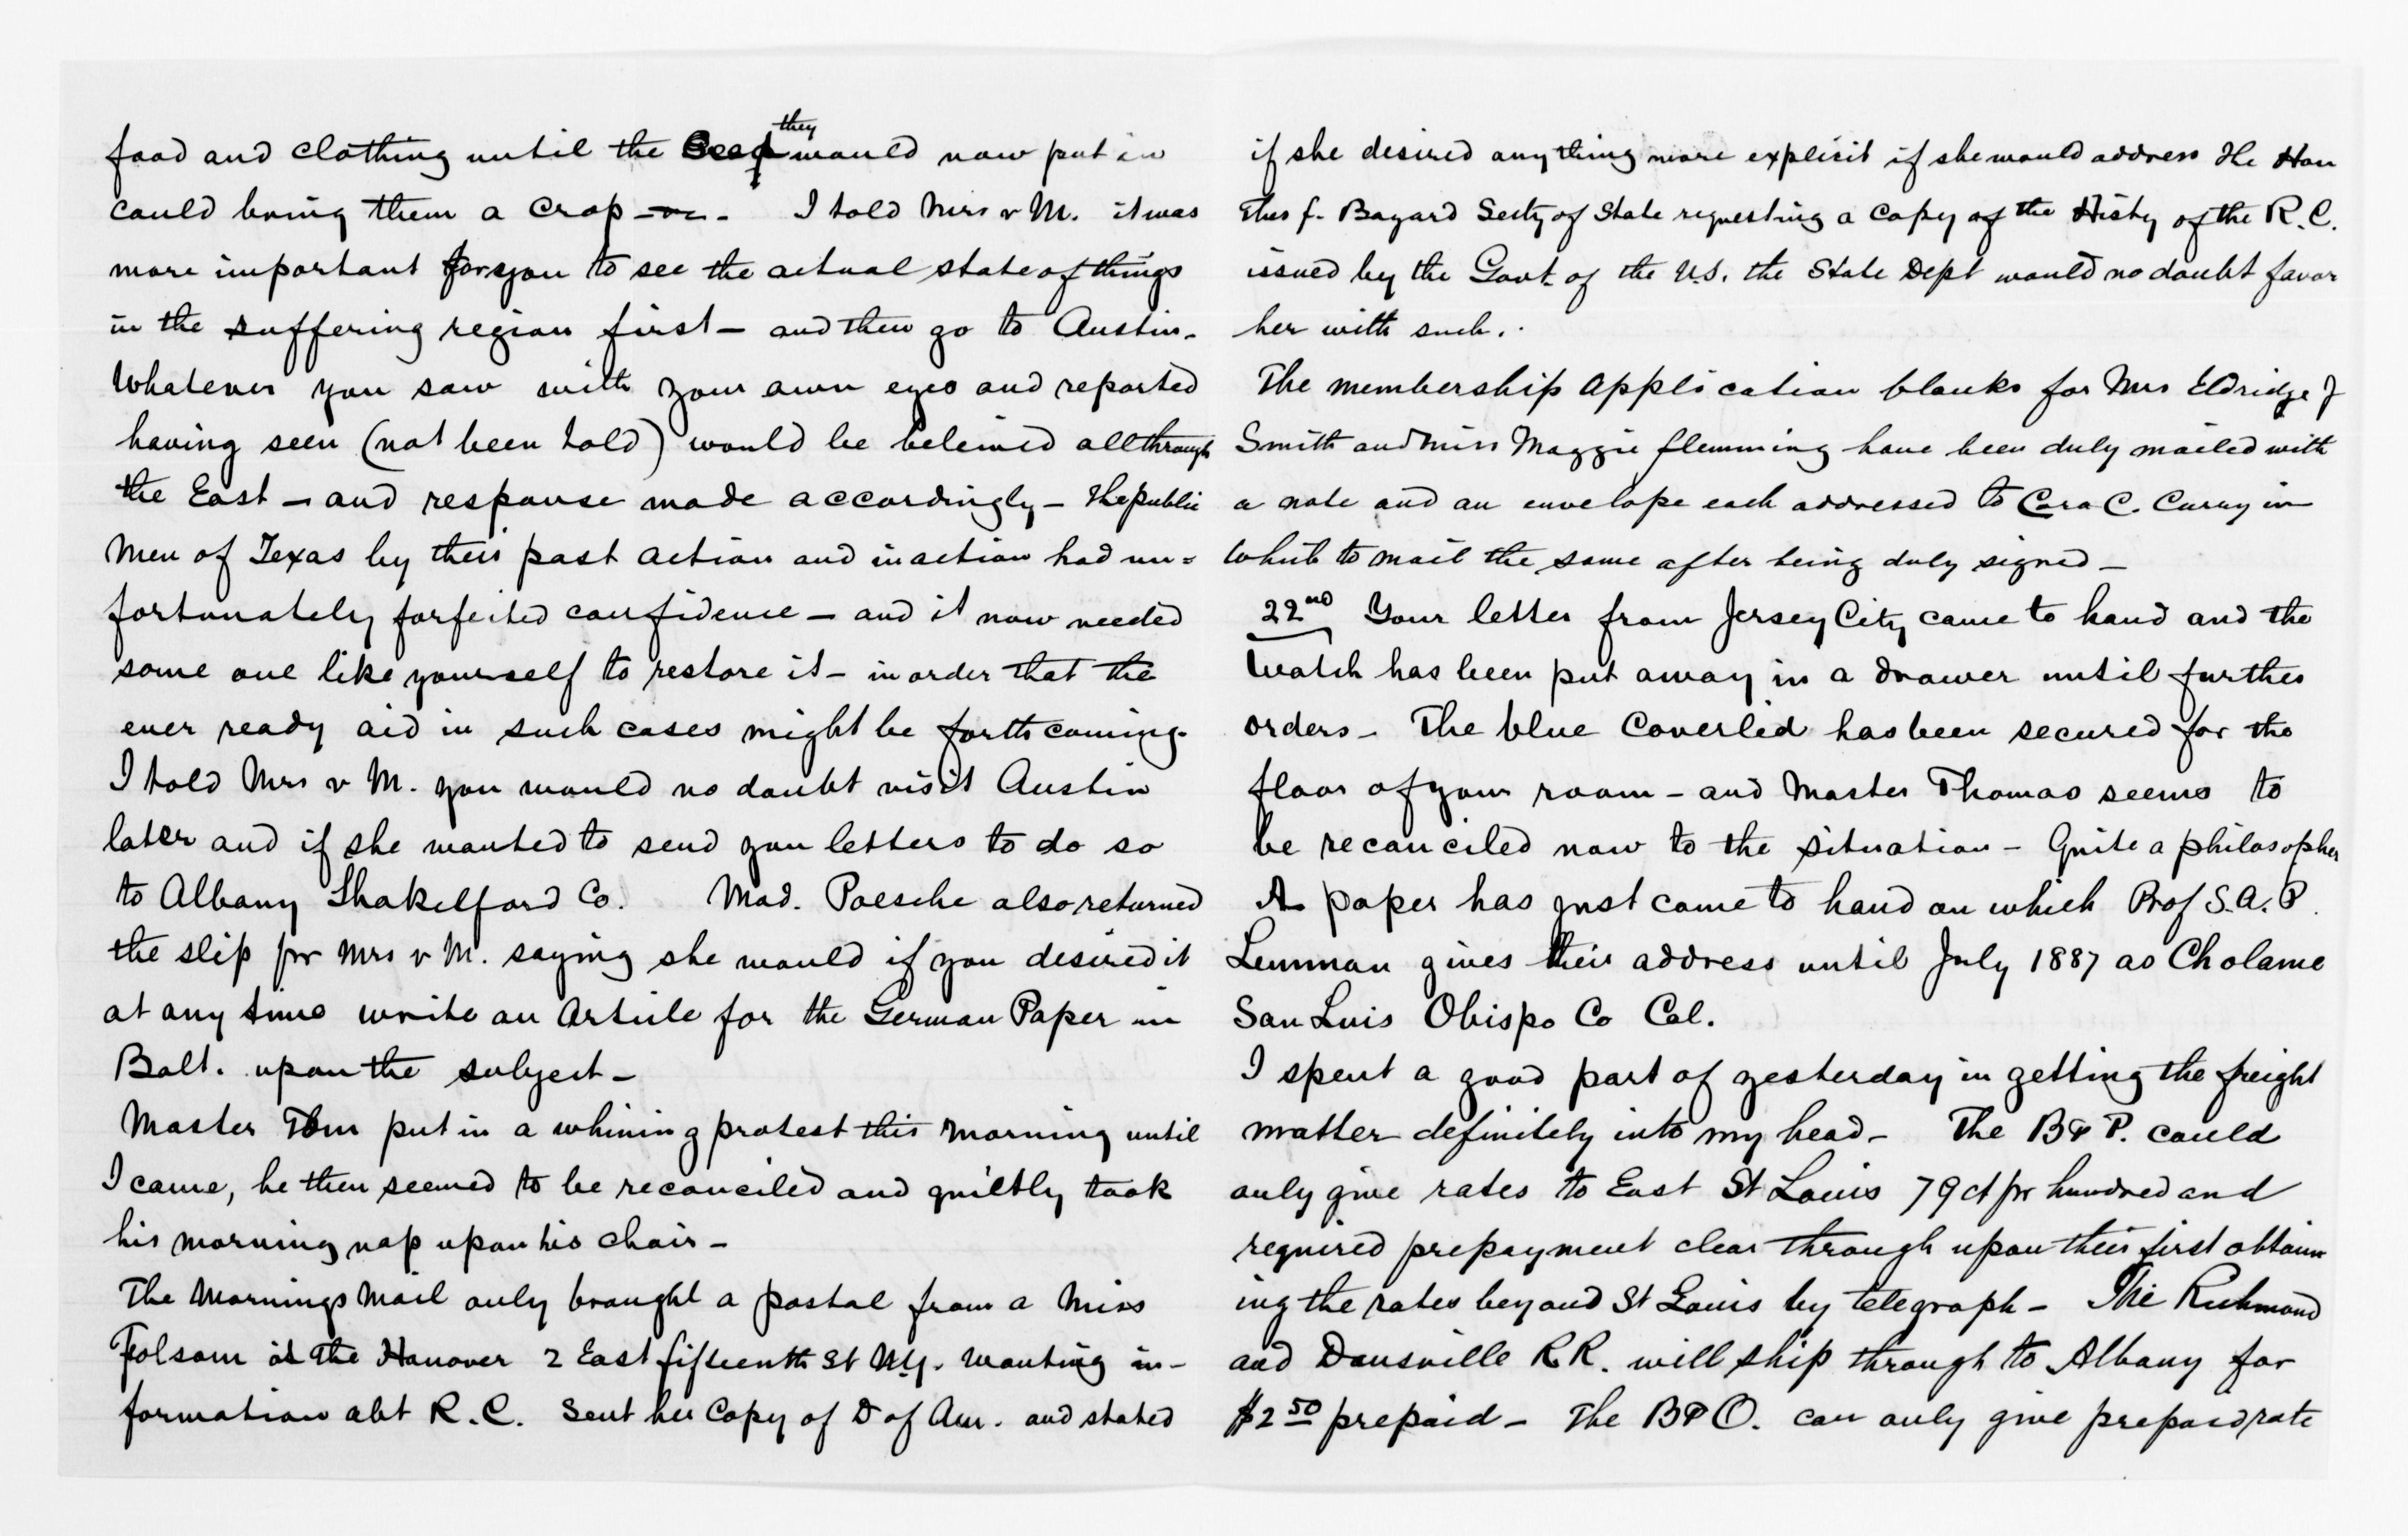 food and clothing until the Seed they would now put in
could bring them a crop - on - I told Mrs v M. it was
more important for you to see the actual state of things
in the suffering region first - and then go to Austin.
Whatever you saw with your own eyes and reported
having seen (not been told) would be beleived all through
the East - and response made accordingly - The public
Men of Texas by their past action and inaction had un=
fortunately forfeited confidence - and it now needed
some one like yourself to restore it - in order that the
ever ready aid in such cases might be forth coming.
I told Mrs v M. you would no doubt visit Austin
later and if she wanted to send you letters to do so
to Albany Shakelford Co. Mad. Poesche also returned
the slip pr Mrs v M. saying she would if you desired it
at any time write an Article for the German Paper in
Balt. upon the subject -
Master Tom put in a whining protest this morning until
I came, he then seemed to be reconciled and quietly took
his morning nap upon his chair -
The Mornings Mail only brought a postal from a Miss
Folsom at the Hanover 2 East fifteenth St N.Y. wanting in-
formation abt R.C. Sent her Copy of D of Am. and stated
if she desired anything more explicit if she would address the Hon
Thos f. Bayard Secty of State requesting a copy of the Histy of the R.C.
issued by the Govt of the U.S. the State Dept would no doubt favor
her with such.
The membership application blanks for Mrs Eldridge J
Smith and Miss Maggie flemming have been duly mailed with
a note and an envelope each addressed to Cora C. Curry in
which to mail the same after being duly signed -
22nd Your letter from Jersey City came to hand and the
watch has been put away in a drawer until further
orders - The blue Coverlid has been secured for the
floor of your room - and Master Thomas seems to
be reconciled now to the situation - Quite a philosopher
A paper has just come to hand on which Prof S.A.P.
Lemman gives their address until July 1887 as Cholame
San Luis Obispo Co Cal.
I spent a good part of yesterday in getting the freight
matter definitely into my head - The B & P. could
only give rates to East St Louis 79 ct pr hundred and
required prepayment clear through upon their first obtain
ing the rates beyond St Louis by telegraph - The Richmond
and Dansville R R. will ship through to Albany for
$2 50 prepaid - The B & O. can only give prepaid rate